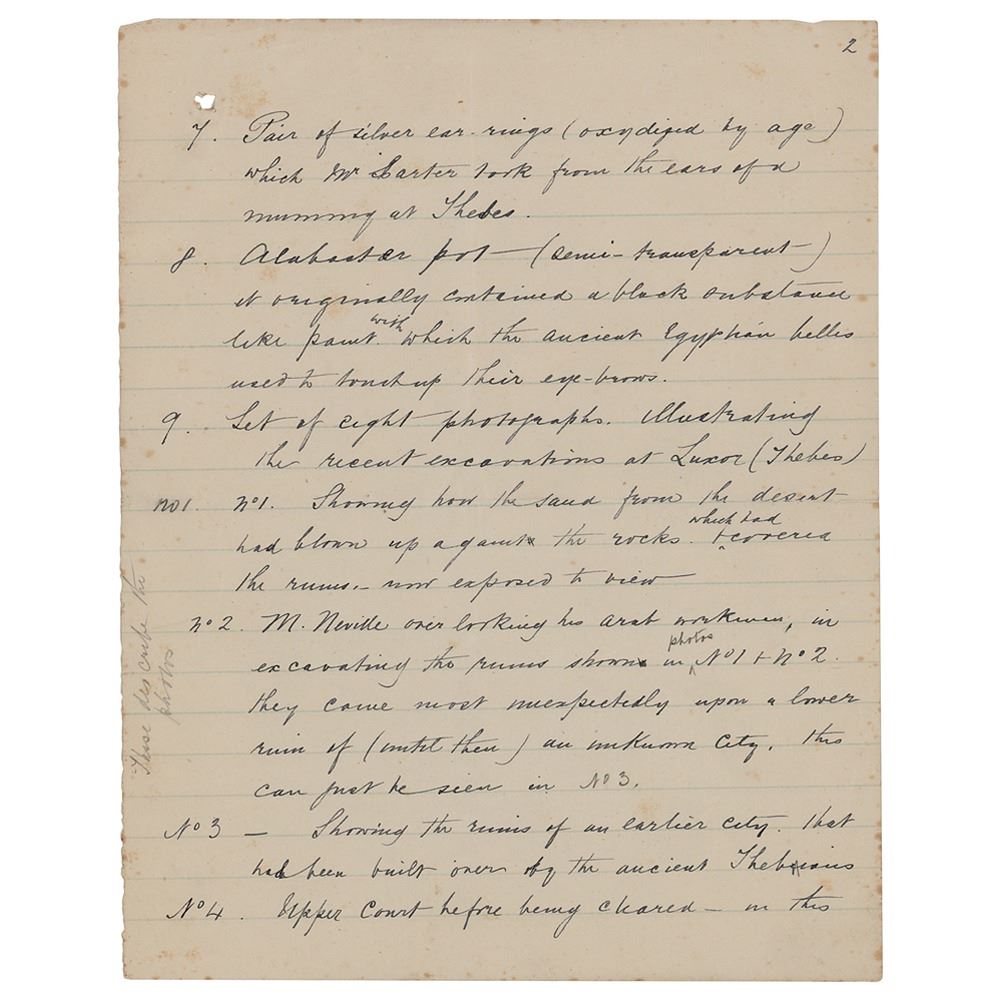 2
7. Pair of silver ear-rings (oxydized by age)
which Mr Carter took from the ears of a
mummy at Thebes.
8. Alabaster pot - (semi-transparent)
it originally contained a black substance
like paint. with which the ancient Egyptian belles
used to touch up their eye-brows.
9. Set of eight photographs. illustrating
the recent excavations at Luxor (Thebes)
No1. No1. Showing how the sand from the desert
had blown up against the rocks. which had covered
the ruins. - now exposed to view
No 2. M. Neville overlooking his arab workmen, in
excavating the ruins shown in photos No 1 + No 2.
they came most unexpectedly upon a lower
ruin of (until then) an unknown city. This
can just be seen in No 3.
No 3 - Showing the ruins of an earlier city. that
had been built over by the ancient Thebians
No 4. Upper Court before being cleared - in this
These describe the
photos